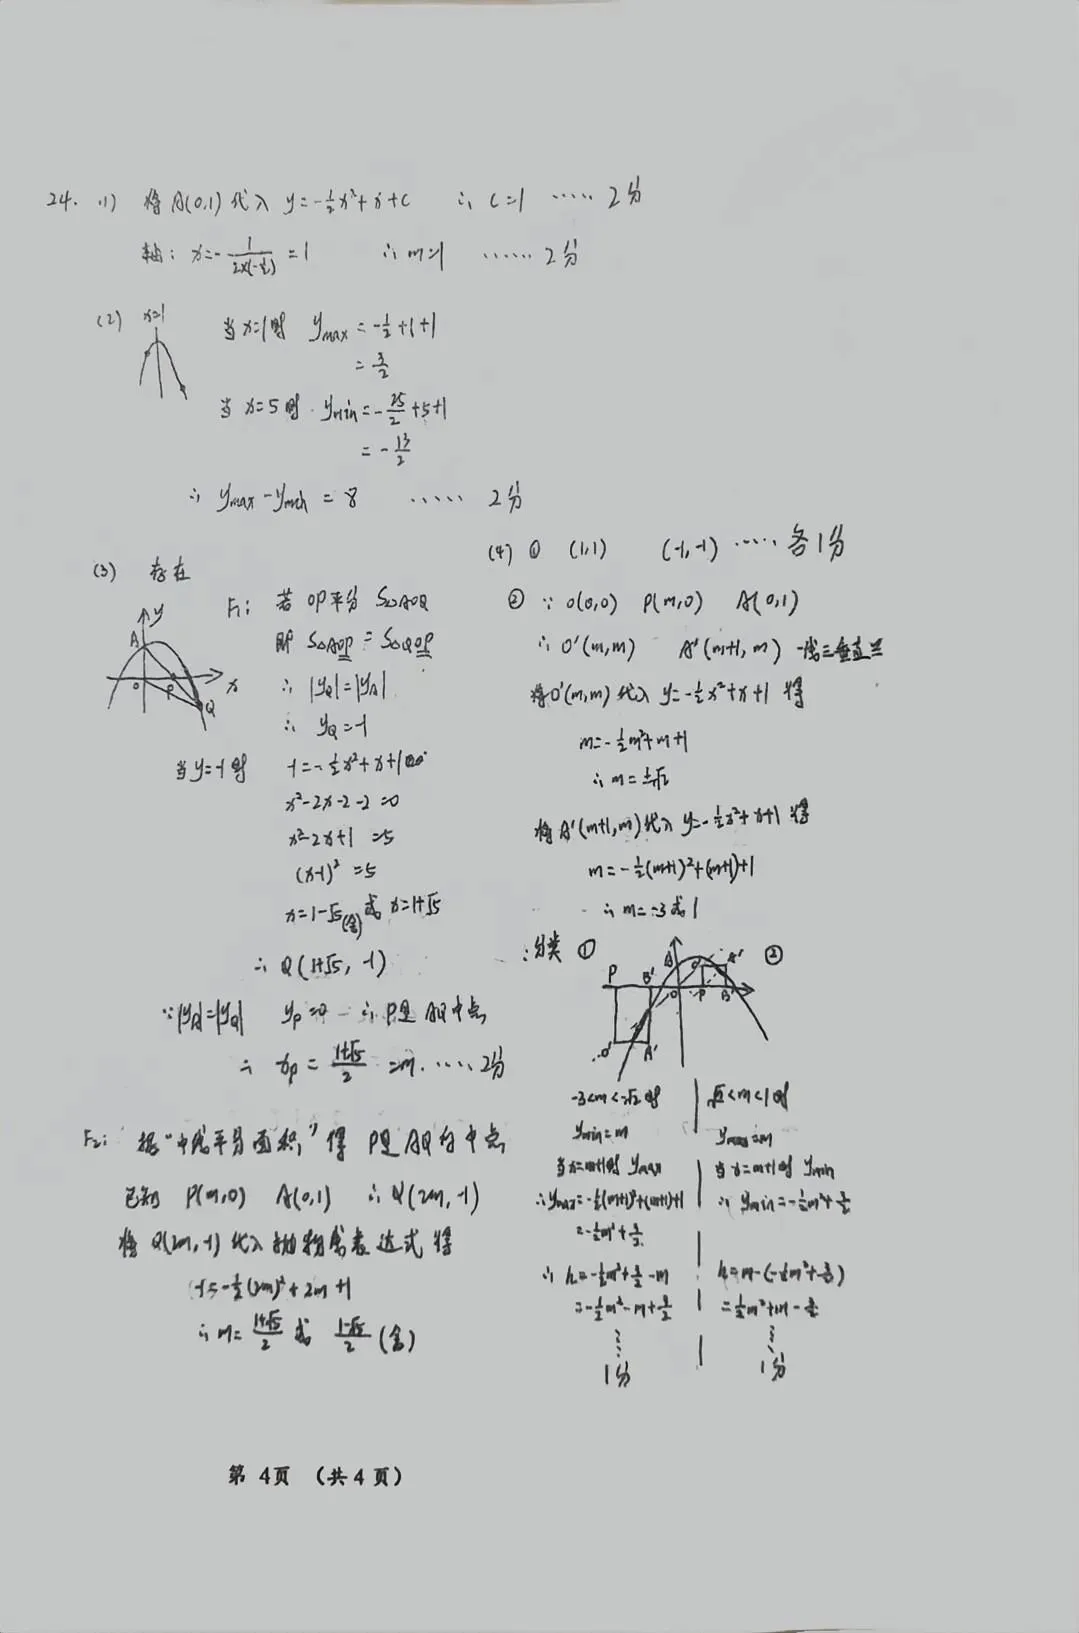 24. (1) 将A(0,1)代入 y=-½x²+x+c ∴ c=1 ····· 2分
轴: x=-1/(2×(-½))=1 ∴ m=1 ······ 2分
(2) x=1
当x=1时 ymax=-½+1+1
=3/2
当x=5时 ymin=-25/2+5+1
=-13/2
∴ ymax-ymin=8 ····· 2分
(3) 存在
A y O P x Q
F₁: 若OP平分S△AOQ
即 S△AOP=S△QOP
∴ |yQ|=|yA|
∴ yQ=-1
当y=-1时 -1=-½x²+x+1
x²-2x-2-2=0
x²-2x+1=5
(x-1)²=5
x=1-√5(舍)或x=1+√5
∴ Q(1+√5, -1)
∵|yA|=|yQ| yP=0 ∴ P是AQ中点
∴ xP=(1+√5)/2=m ····· 2分
F₂: 据"中线平分面积," 得 P是AQ的中点
已知 P(m,0) A(0,1) ∴ Q(2m,-1)
将Q(2m,-1)代入抛物线表达式得
-1=-½(2m)²+2m+1
∴ m=(1+√5)/2 或 (1-√5)/2 (舍)
(4) ① (1,1) (-1,-1) ····· 各1分
② ∵ O(0,0) P(m,0) A(0,1)
∴ O'(m,m) A'(m+1,m) 一线三垂直
将O'(m,m)代入 y=-½x²+x+1 得
m=-½m²+m+1
∴ m=±√2
将A'(m+1,m)代入y=-½x²+x+1得
m=-½(m+1)²+(m+1)+1
∴ m=-3或1
∴分类 ① ②
P B' A O O' A' P B'
O' A'
-3<m<-√2时
ymin=m
当x=m+1时 ymax
∴ymax=-½(m+1)²+(m+1)+1
=-½m²+3/2
∴ h=-½m²+3/2-m
=-½m²-m+3/2
1分
√2<m<1时
ymax=m
当x=m+1时 ymin
∴ ymin=-½m²+3/2
h=m-(-½m²+3/2)
=½m²+m-3/2
1分
第 4页 （共 4 页）